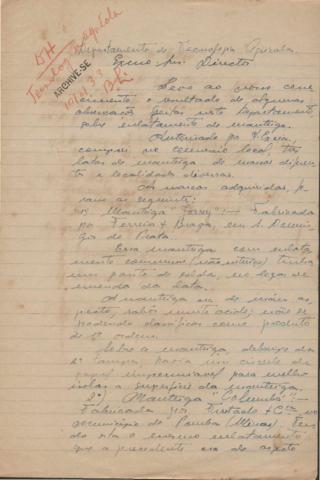 ARCHIVE-SE
10/01/33
Departamento de Tecnologia Agricola
Exmo Snr. Director
Levo ao vosso conhe
cimento o resultado de algumas
observações feitas neste Departamento,
sobre enlatamento de manteiga.
Autorizado por V. Excia.
comprei no comercio local tres
latas de manteiga de marcas diffe
rentes e localidades diversas.
As marcas adquiridas, fo
ram as seguintes:
1ª) Manteiga "Jersey":- Fabricada
por Ferreira & Braga, em S. Domin
gos do Prata.
Essa manteiga com enlata
mento commum (não interno) tinha
um ponto de solda, no logar da
emenda da lata.
A manteiga era de máu as
pecto, sabor muito acido; não se
podendo classificar como producto
de 1ª ordem.
Sobre a manteiga, debaixo da
2ª tampa, havia um circulo de
papel impermeavel para melhor
isolar a superficie da manteiga.
2ª) Manteiga "Columbia":-
Fabricada por Furtado & Cia no
municipio de Pomba (Minas).
da lata o mesmo enlatamento
que a precedente era de aspecto